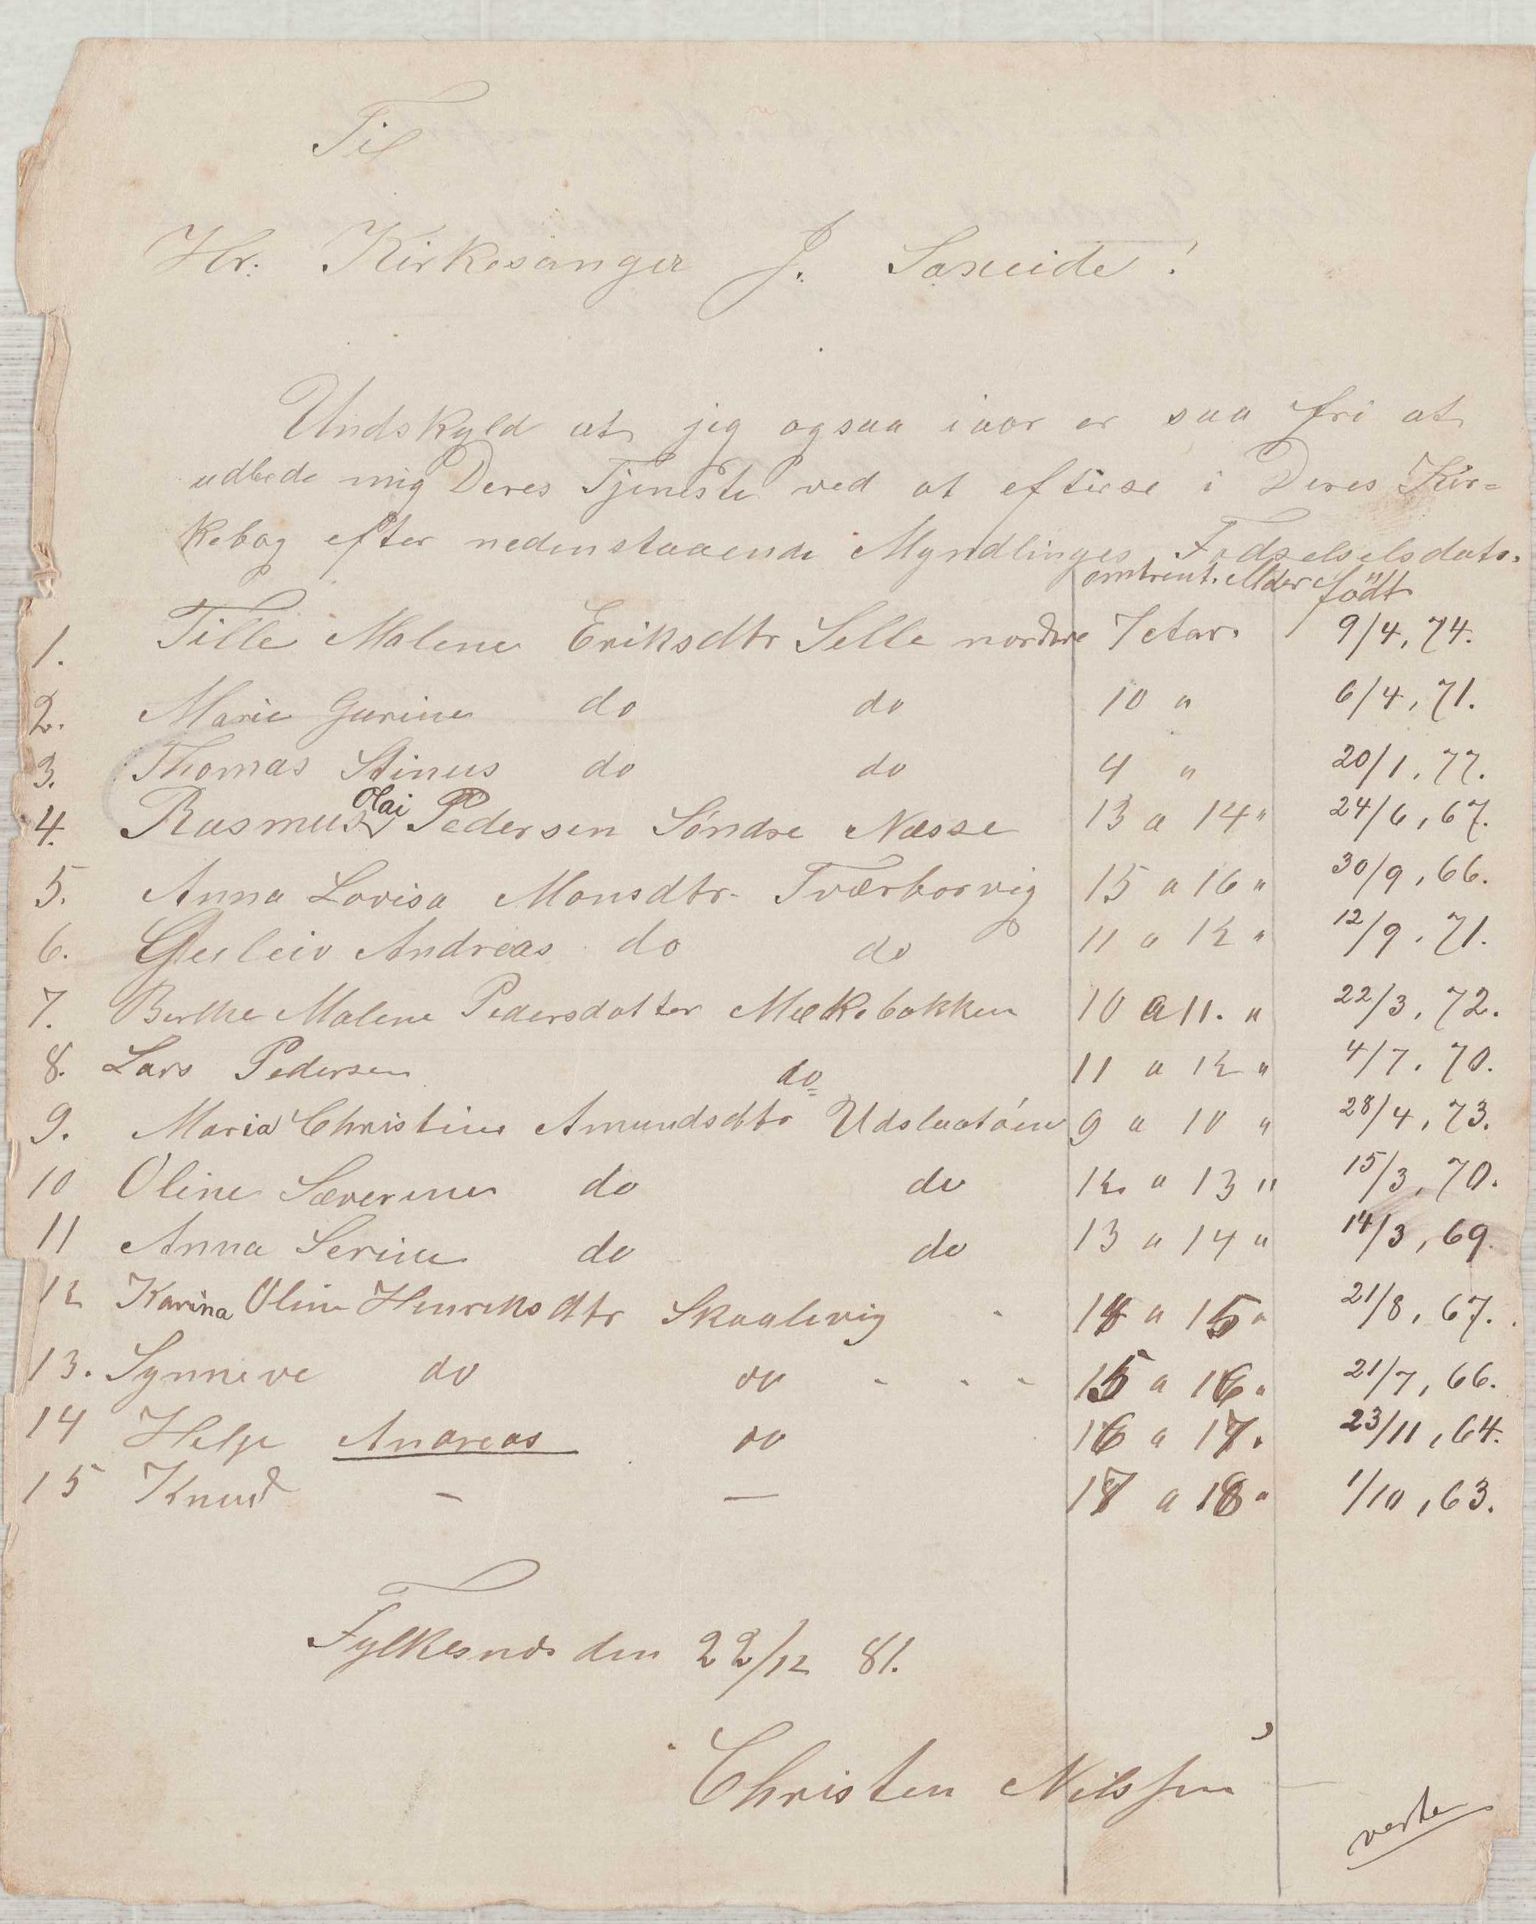 Til
Hr. Kirkesanger J. Saxeide!
Undskyld at jeg ogsaa iaar er saa fri at
udbede mig Deres Tjeneste ved at efterse i Deres Kir=
kebog efter nedenstaaende Myndlinges Fødselselsdato.
omtrent. Alder födt
1. Tille Malene Eriksdtr Selle nordre 7 Aar. 9/4, 74.
2. Marie Gurine do do 10 " 6/4, 71.
3. Thomas Stinus do do 4 " 20/1, 77.
4. Rasmus Olai Pedersen Søndre Næsse 13 a 14 " 24/6, 67.
5. Anna Lovisa Monsdtr. Tværborvig 15 a 16 " 30/9, 66.
6. Guleiv Andreas do do 11 a 12 " 12/9, 71.
7. Berthe Malene Pedersdatter Mækebakken 10 a 11. " 22/3, 72.
8. Lars Pedersen do 11 a 12 " 4/7, 70.
9. Maria Christine Amundsdtr Udslaatøen 9 a 10 " 28/4, 73.
10 Oline Sæverine do do 12 a 13 " 15/3, 70.
11 Anna Serine do do 13 a 14 " 14/3, 69.
12 Karina Oline Henriksdtr Skaalevig 14 a 15 " 21/8, 67.
13. Synneve do do 15 a 16 " 21/7, 66.
14 Helge Andreas do 16 a 17 " 23/11, 64.
15 Knud — — 17 a 18 " 1/10, 63.
Fylkesnæs den 22/12 81.
Christen Nilssen
verte